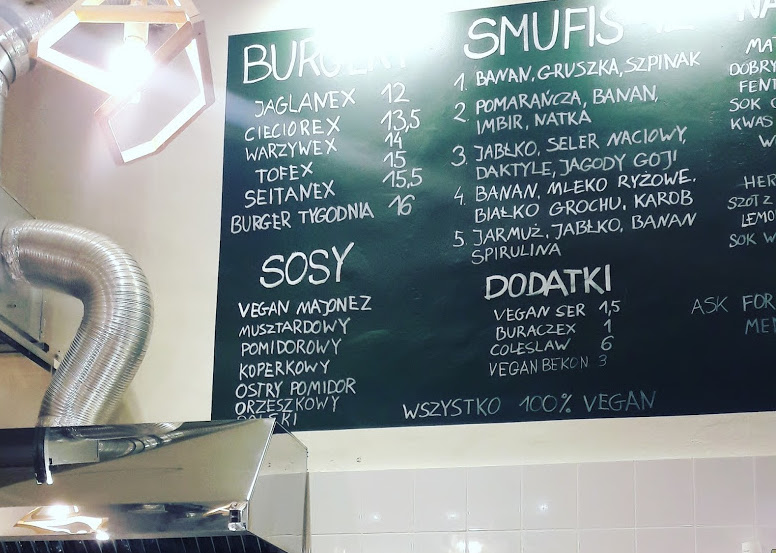 BURGERY
JAGLANEX 12
CIECIOREX 13,5
WARZYWEX 14
TOFEX 15
SEITANEX 15,5
BURGER TYGODNIA 16
SOSY
VEGAN MAJONEZ
MUSZTARDOWY
POMIDOROWY
KOPERKOWY
OSTRY POMIDOR
ORZESZKOWY
SMUFIS
1. BANAN, GRUSZKA, SZPINAK
2. POMARAŃCZA, BANAN,
IMBIR, NATKA
3. JABŁKO, SELER NACIOWY,
DAKTYLE, JAGODY GOJI
4. BANAN, MLEKO RYŻOWE,
BIAŁKO GROCHU, KAROB
5. JARMUŻ, JABŁKO, BANAN
SPIRULINA
DODATKI
VEGAN SER 1,5
BURACZEX 1
COLESLAW 6
VEGAN BEKON 3
WSZYSTKO 100% VEGAN
NA
MAT
DOBRY
FENT
SOK
KWAS
W
HER
SZOT Z
LEMO
SOK W
ASK FOR
MEN